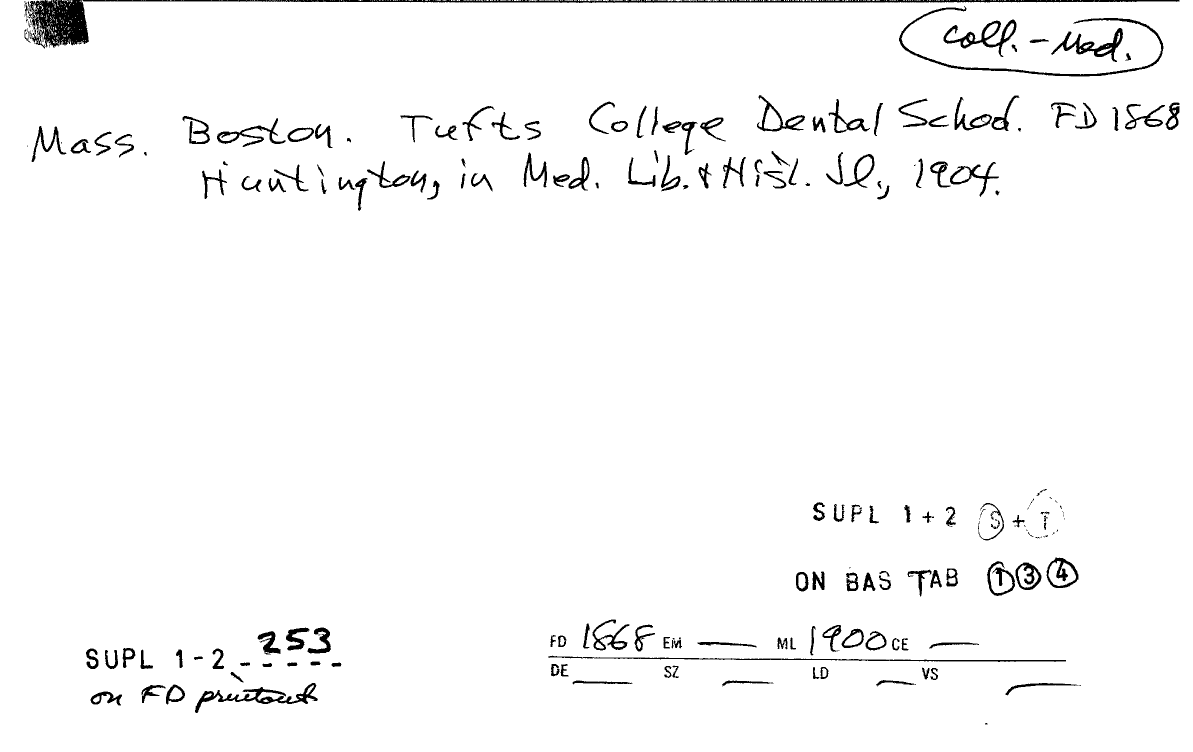 Coll. - Med.
Mass. Boston. Tufts College Dental School. FD 1868
Huntington, in Med. Lib. & Hist. Jl., 1904.
SUPL 1 + 2 S + T
ON BAS TAB 1 3 4
SUPL 1-2 253
on FD printout
FD 1868 EM — ML 1900 CE —
DE — SZ — LD — VS —